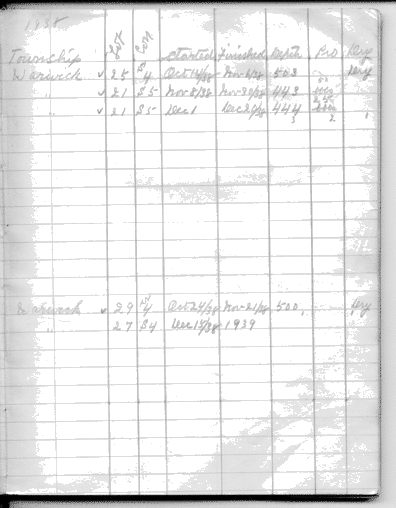 Township Lot Con Started Finished Depth Pro Dry
Warwick ✓ 25 4 Oct 14/38 Nov 4/38 503 Dry
" ✓ 21 S5 Nov 8/38 Nov 30/38 443
" ✓ 21 S5 Dec 1 Dec 20/38 444
Warwick ✓ 29 4 Oct 24/38 Nov 21/38 500 Dry
" 27 S4 Dec 15/38 1939